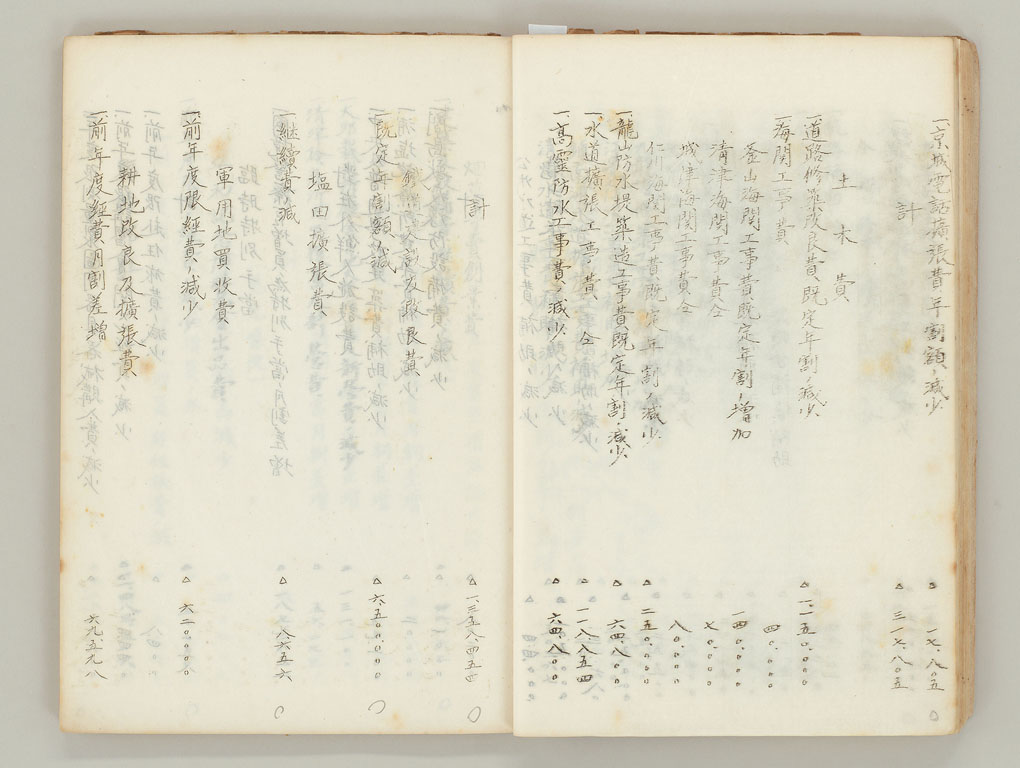 一、京城電話擴張費年割額ノ減少 △一七、八〇五
計 △三一七、八〇五
土木費
一、道路修築改良費既定年割ノ減少 △一、一五〇、〇〇〇
一、海関工事費 四〇、〇〇〇
釜山海関工事費既定年割ノ増加 一四〇、〇〇〇
清津海関工事費仝 七〇、〇〇〇
城津海関工事費仝 八〇、〇〇〇
仁川海関工事費既定年割ノ減少 △二五〇、〇〇〇
一、龍山防水堤築造工事費既定年割ノ減少 △六四、八〇〇
一、水道擴張工事費仝 △一一八、八五四
一、高靈防水工事費ノ減少 △六四、八〇〇
計 △一、三五八、四五四
一、既定年割額ノ減 △六五〇、〇〇〇
塩田擴張費
一、継續費ノ減 △八六五六
軍用地買收費
一、前年度限經費ノ減少 △六二〇、〇〇〇
耕地改良及擴張費
一、前年度經費月割差増 六九、五九八